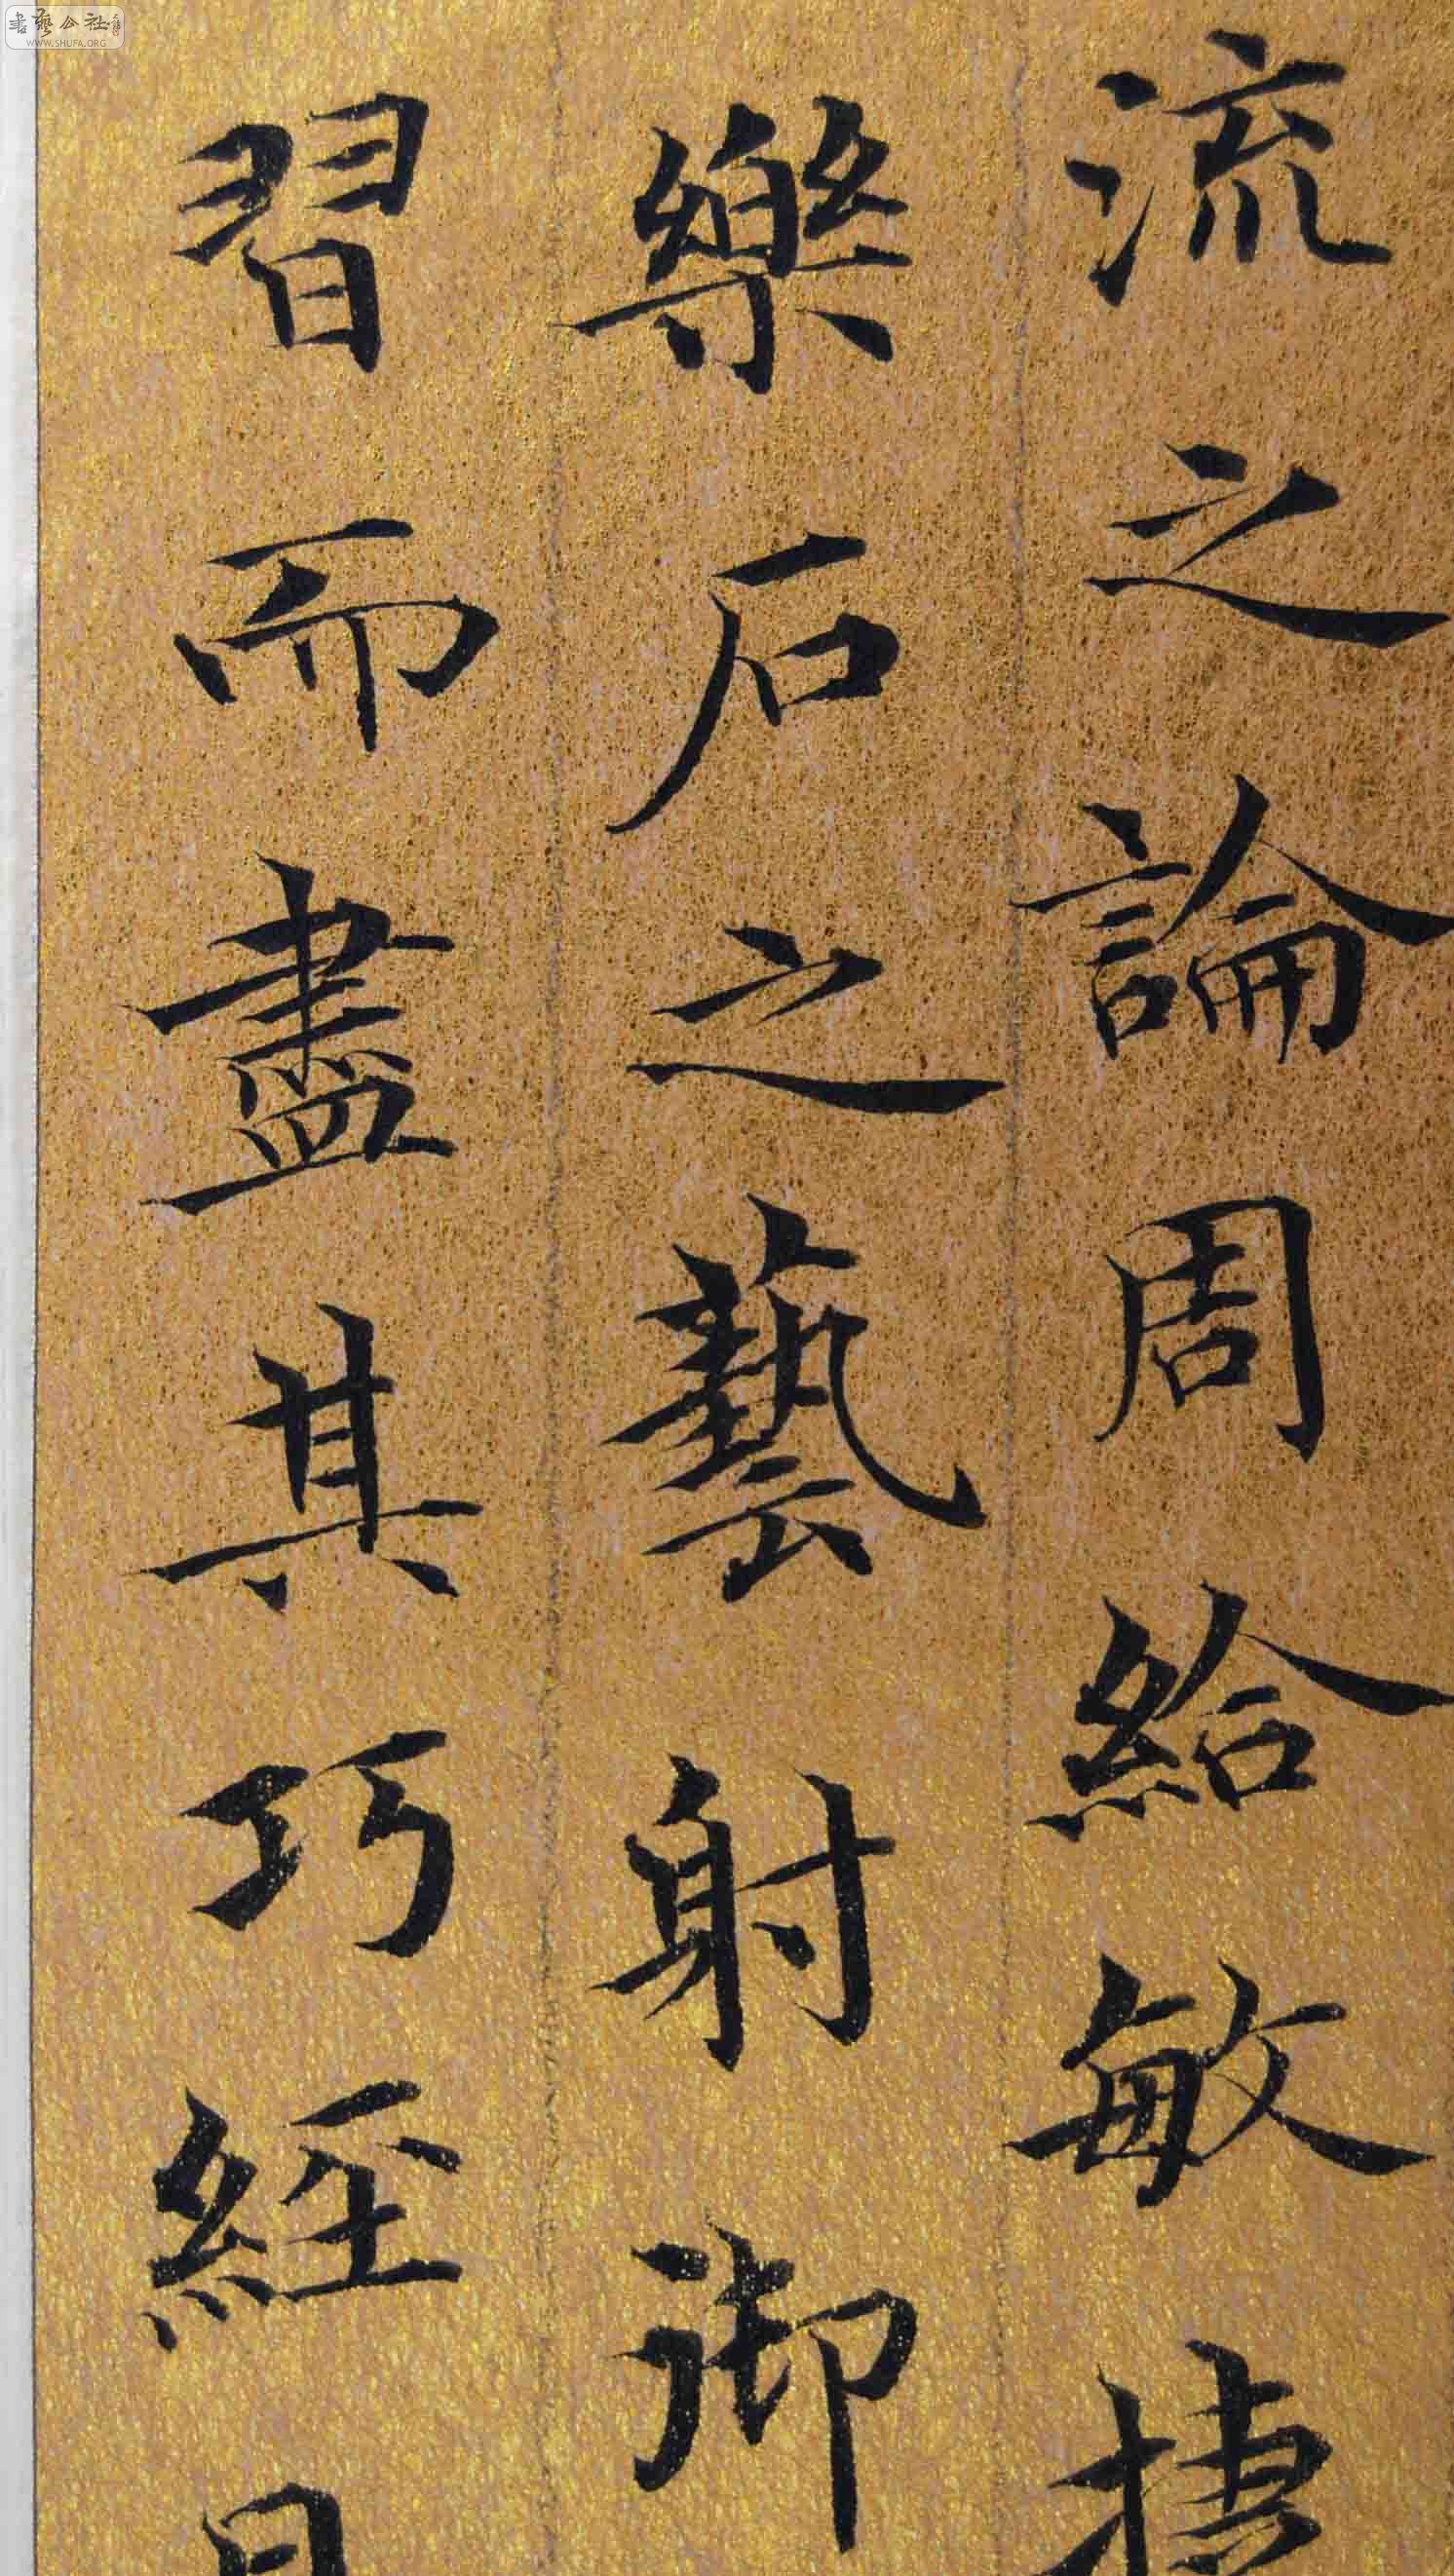 流之論周給敏捷
樂石之藝射御
習而盡其巧經
書藝公社
WWW.SHUFA.ORG